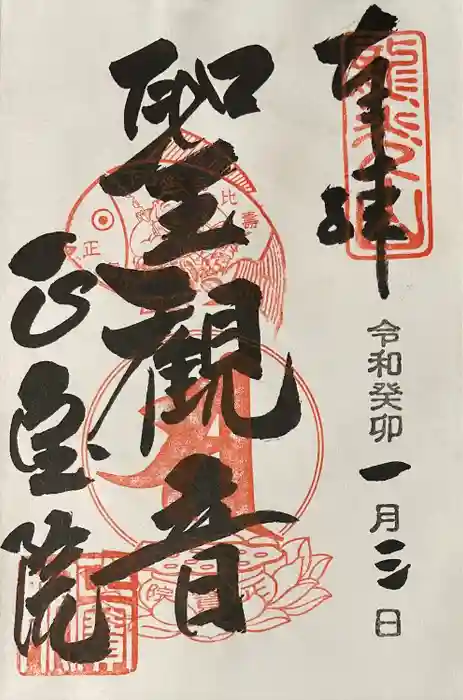 奉拝
令和癸卯一月三日
聖観音
正宝院
龍光山
比寿
正